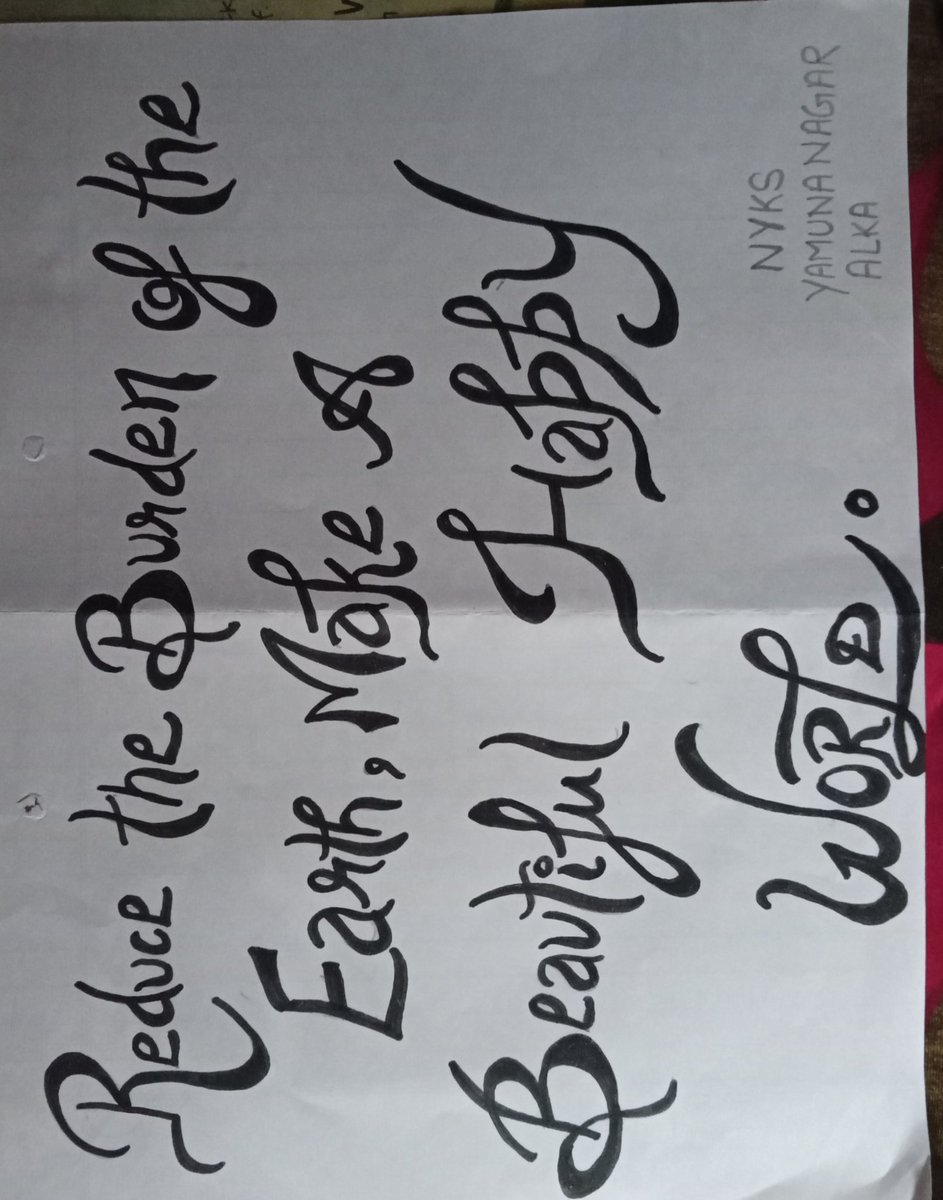 Reduce the Burden of the
Earth, Make A
Beautiful Happy
WORLD.
NYKS
YAMUNANAGAR
ALKA